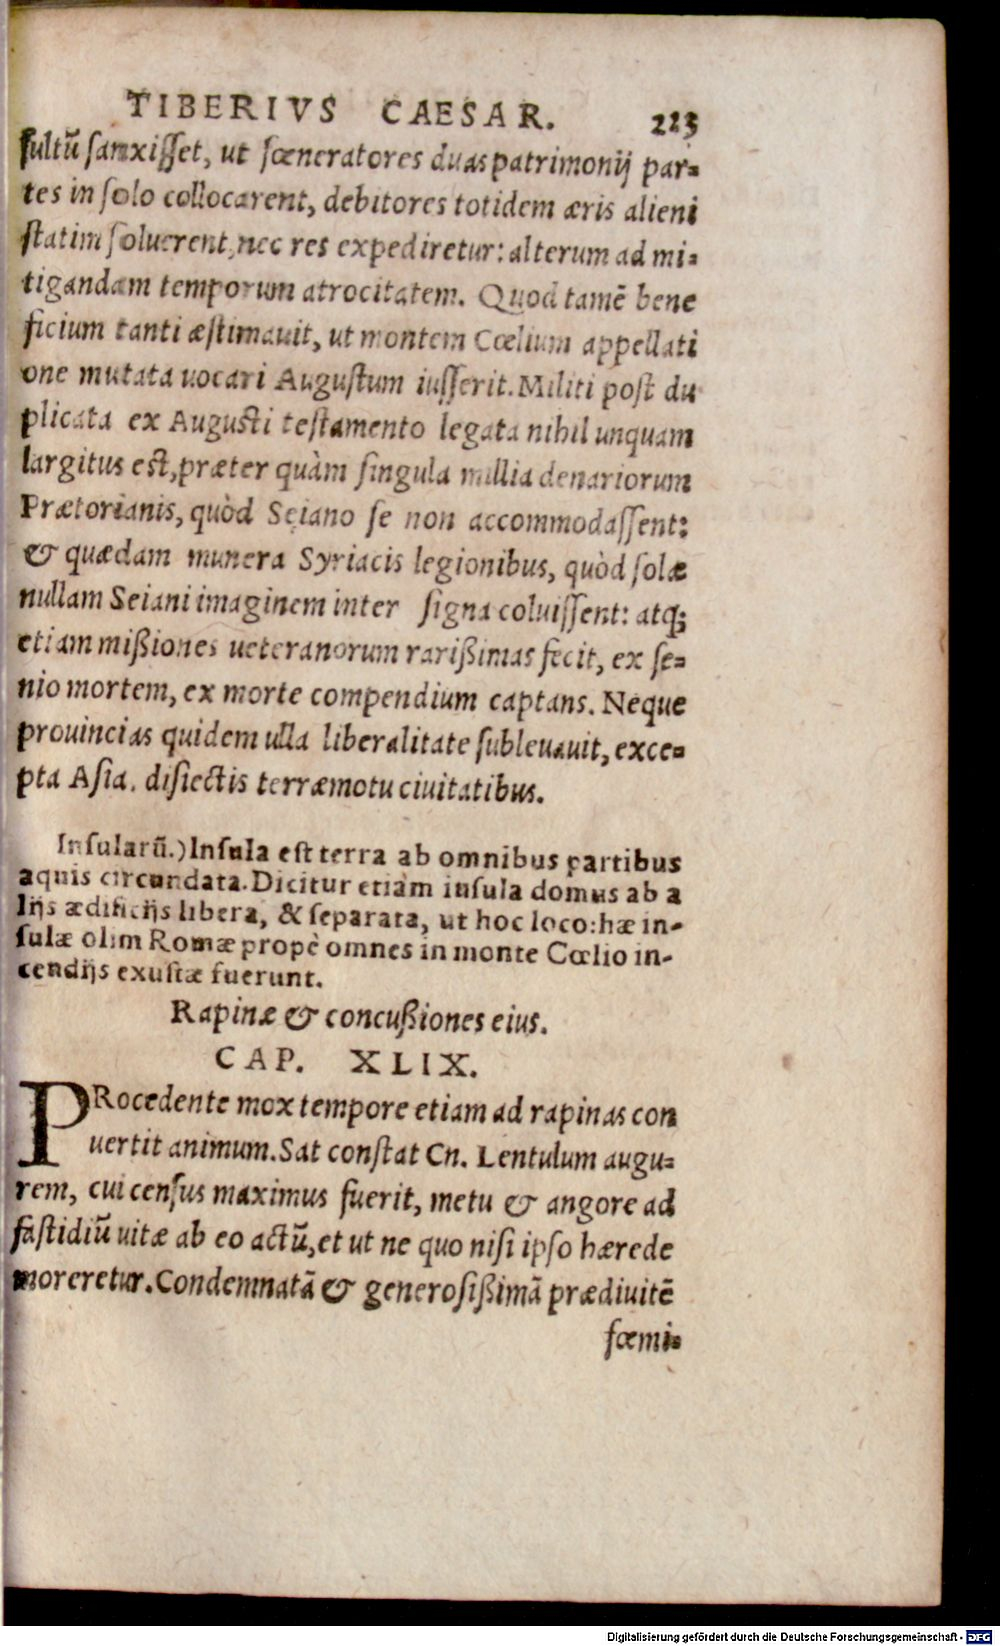 TIBERIVS CAESAR. 223
ſultũ ſanxiſſet, ut fœneratores duas patrimonij par-
tes in ſolo collocarent, debitores totidem æris alieni
ſtatim ſoluerent, nec res expediretur: alterum ad mi-
tigandam temporum atrocitatem. Quod tamẽ bene
ficium tanti æſtimauit, ut montem Cœlium appellati
one mutata uocari Auguſtum iuſſerit. Militi poſt du
plicata ex Auguſti teſtamento legata nihil unquam
largitus eſt, præter quàm ſingula millia denariorum
Prætorianis, quòd Seiano ſe non accommodaſſent:
& quædam munera Syriacis legionibus, quòd ſolæ
nullam Seiani imaginem inter ſigna coluiſſent: atq;
etiam mißiones ueteranorum rarißimas fecit, ex ſe-
nio mortem, ex morte compendium captans. Neque
prouincias quidem ulla liberalitate ſubleuauit, exce-
pta Aſia, diſiectis terræmotu ciuitatibus.
Inſularũ.) Inſula eſt terra ab omnibus partibus
aquis circundata. Dicitur etiàm inſula domus ab a
lijs ædificijs libera, & ſeparata, ut hoc loco: hæ in-
ſulæ olim Romæ propè omnes in monte Cœlio in-
cendijs exuſtæ fuerunt.
Rapinæ & concußiones eius.
CAP. XLIX.
PRocedente mox tempore etiam ad rapinas con
uertit animum. Sat conſtat Cn. Lentulum augu-
rem, cui cenſus maximus fuerit, metu & angore ad
faſtidiũ uitæ ab eo actũ, et ut ne quo niſi ipſo hærede
moreretur. Condemnatã & generoſißimã prædiuitẽ
fœmi-
Digitalisierung gefördert durch die Deutsche Forschungsgemeinschaft - DFG